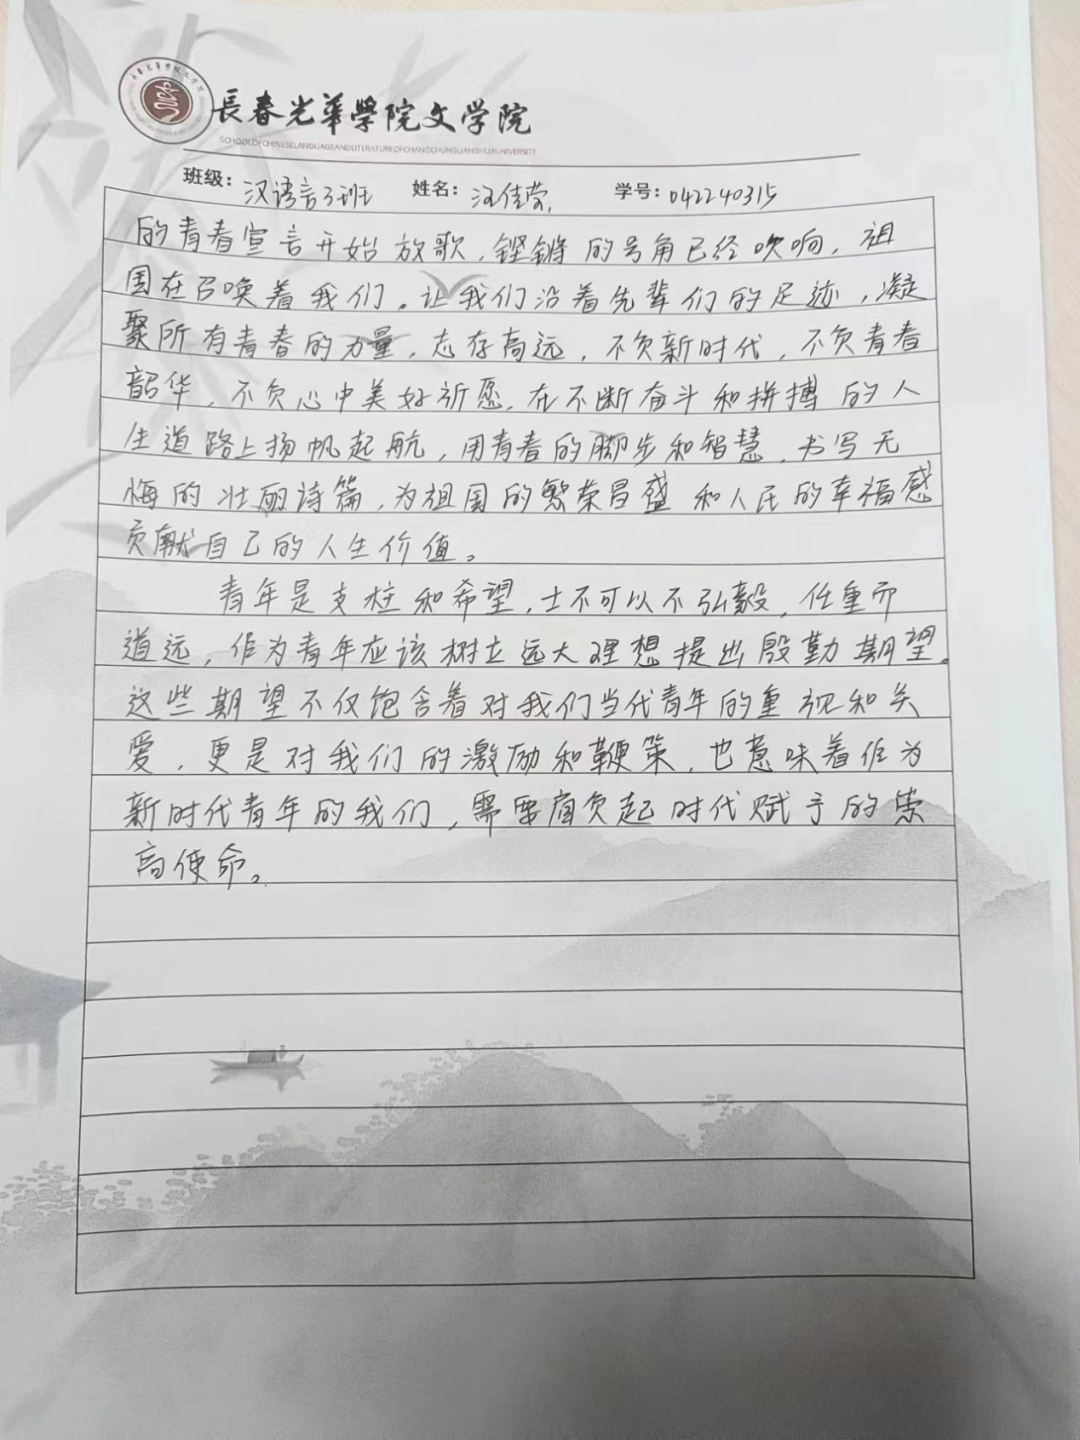 長春光華學院文学院
SCHOOL OF CHINESE LANGUAGE AND LITERATURE OF CHANGCHUN GUANGHUA UNIVERSITY
班级: 汉语言3班 姓名: 汪佳荣 学号: 042240315
的青春宣言开始放歌,铿锵的号角已经吹响,祖
国在召唤着我们。让我们沿着先辈们的足迹,凝
聚所有青春的力量,志存高远,不负新时代,不负青春
韶华,不负心中美好祈愿,在不断奋斗和拼搏的人
生道路上扬帆起航,用青春的脚步和智慧,书写无
悔的壮丽诗篇,为祖国的繁荣昌盛和人民的幸福感
贡献自己的人生价值。
青年是支柱和希望,士不可以不弘毅,任重而
道远,作为青年应该树立远大理想提出殷勤期望。
这些期望不仅饱含着对我们当代青年的重视和关
爱,更是对我们的激励和鞭策,也意味着作为
新时代青年的我们,需要肩负起时代赋予的崇
高使命。